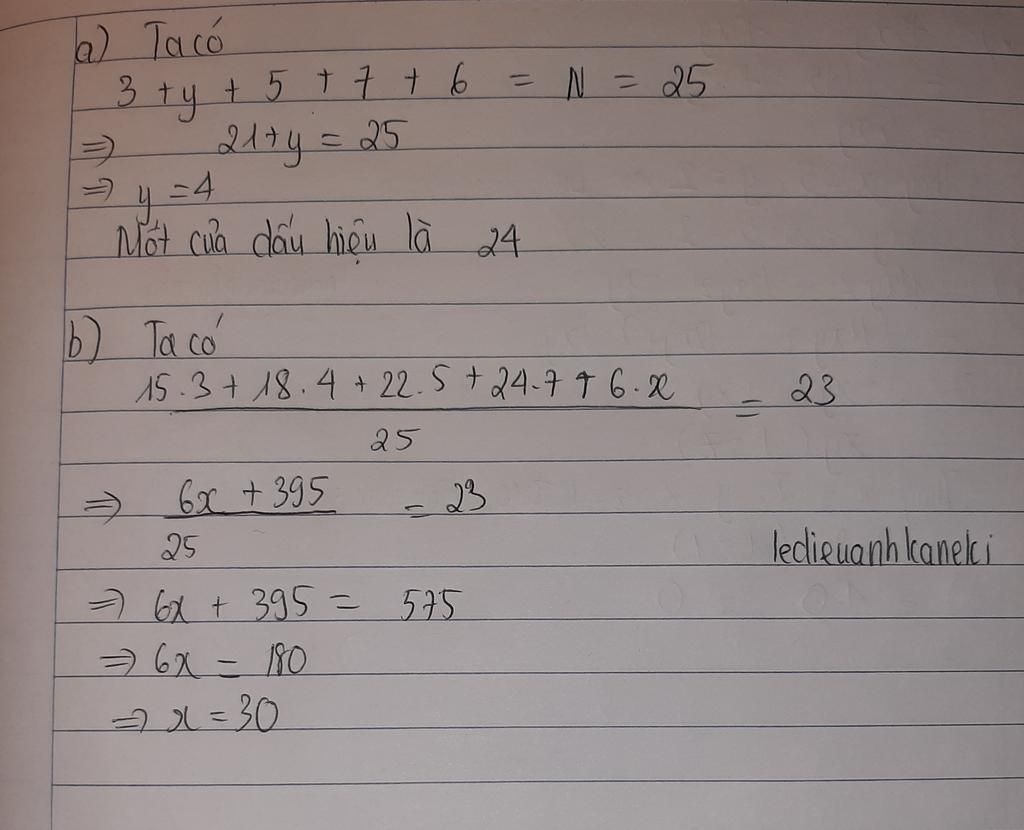 a) Ta có
3 + y + 5 + 7 + 6 = N = 25
⇒ 21 + y = 25
⇒ y = 4
Mốt của dấu hiệu là 24
b) Ta có
15.3 + 18.4 + 22.5 + 24.7 + 6.x = 23
25
⇒ 6x + 395 = 23
25
ledieuanhkaneki
⇒ 6x + 395 = 575
⇒ 6x = 180
⇒ x = 30